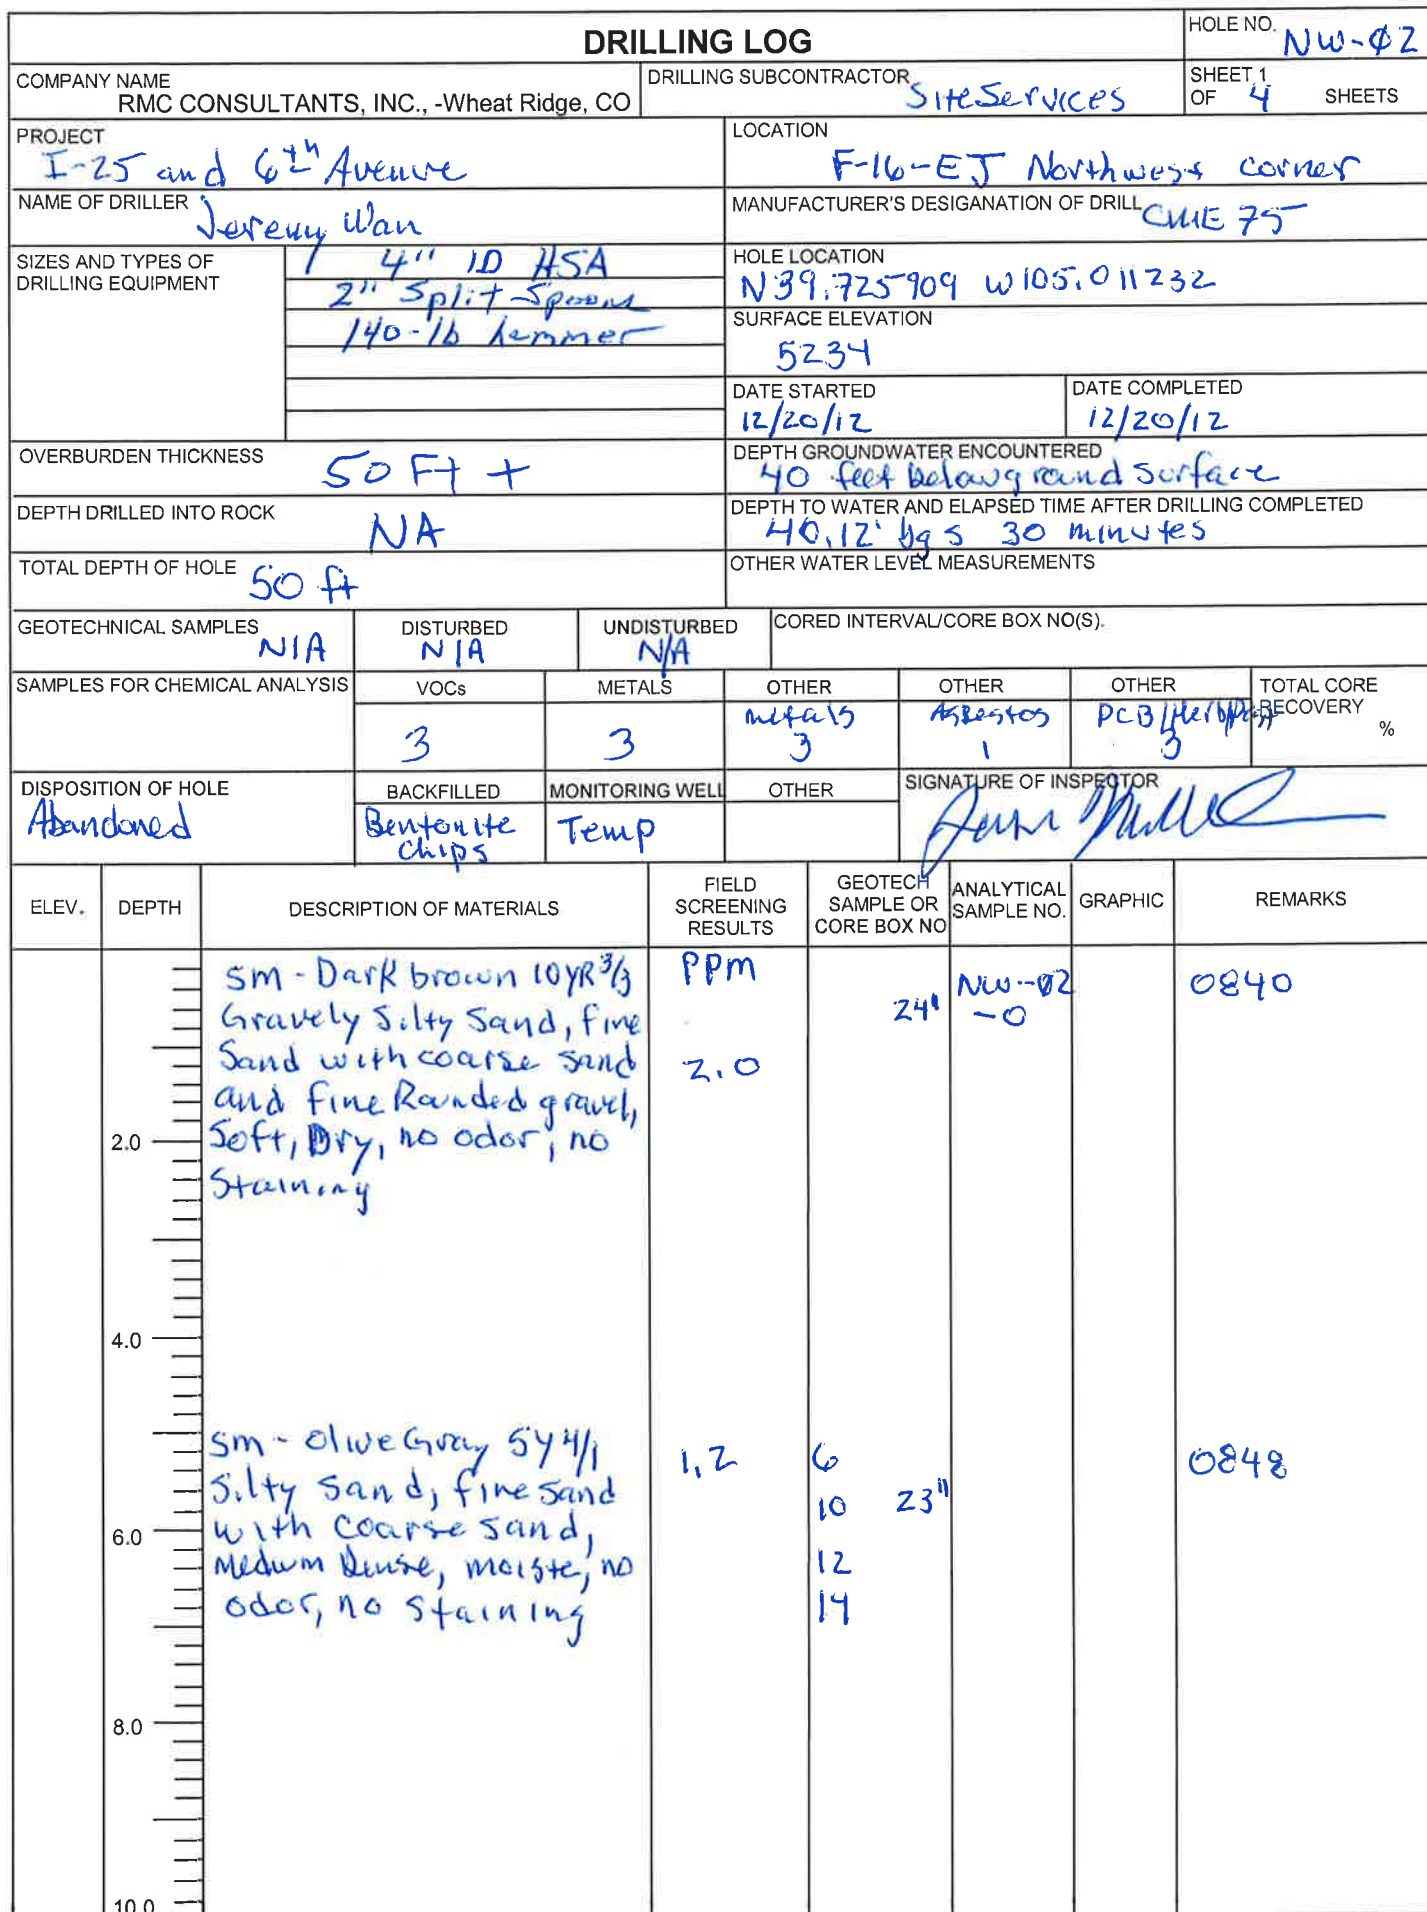 DRILLING LOG
HOLE NO. NW-02
COMPANY NAME
RMC CONSULTANTS, INC., -Wheat Ridge, CO
DRILLING SUBCONTRACTOR SiteServices
SHEET 1
OF 4 SHEETS
PROJECT
I-25 and 6th Avenue
LOCATION
F-16-EJ Northwest corner
NAME OF DRILLER Jeremy Wan
MANUFACTURER'S DESIGANATION OF DRILL CME 75
SIZES AND TYPES OF
DRILLING EQUIPMENT
4" ID HSA
2" Split Spoons
140-lb hammer
HOLE LOCATION
N39.725909 W105.011232
SURFACE ELEVATION
5234
DATE STARTED
12/20/12
DATE COMPLETED
12/20/12
OVERBURDEN THICKNESS 50 Ft +
DEPTH GROUNDWATER ENCOUNTERED
40 feet below ground surface
DEPTH DRILLED INTO ROCK NA
DEPTH TO WATER AND ELAPSED TIME AFTER DRILLING COMPLETED
40.12' bgs 30 minutes
TOTAL DEPTH OF HOLE 50 ft
OTHER WATER LEVEL MEASUREMENTS
GEOTECHNICAL SAMPLES N/A
DISTURBED
N/A
UNDISTURBED
N/A
CORED INTERVAL/CORE BOX NO(S).
SAMPLES FOR CHEMICAL ANALYSIS
VOCs
3
METALS
3
OTHER
metals
3
OTHER
Asbestos
1
OTHER
PCB/Herb/Pest
3
TOTAL CORE
RECOVERY
%
DISPOSITION OF HOLE
Abandoned
BACKFILLED
Bentonite
chips
MONITORING WELL
Temp
OTHER
SIGNATURE OF INSPECTOR
ELEV.
DEPTH
DESCRIPTION OF MATERIALS
FIELD
SCREENING
RESULTS
GEOTECH
SAMPLE OR
CORE BOX NO
ANALYTICAL
SAMPLE NO.
GRAPHIC
REMARKS
SM - Dark brown 10YR 3/3
Gravely Silty Sand, fine
Sand with coarse sand
and fine Rounded gravel,
Soft, Dry, no odor, no
Staining
PPM
2.0
24"
NW--02
-0
0840
2.0
4.0
SM - Olive Gray 5Y 4/1
Silty Sand, fine sand
with coarse sand,
Medium Dense, moiste, no
odor, no staining
1.2
6
10 23"
12
14
0848
6.0
8.0
10.0